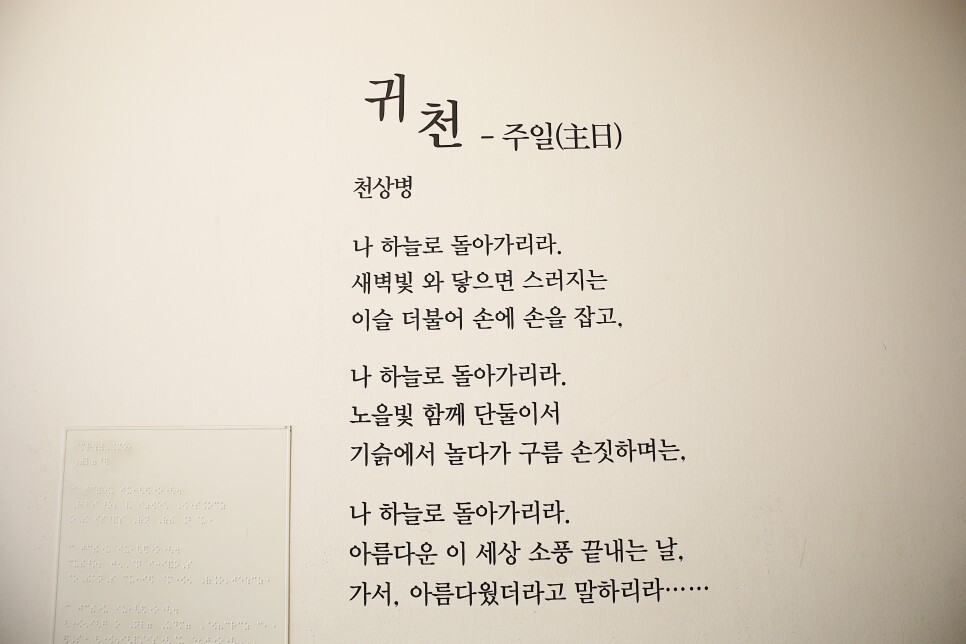 귀천 - 주일(主日)
천상병
나 하늘로 돌아가리라.
새벽빛 와 닿으면 스러지는
이슬 더불어 손에 손을 잡고,
나 하늘로 돌아가리라.
노을빛 함께 단둘이서
기슭에서 놀다가 구름 손짓하며는,
나 하늘로 돌아가리라.
아름다운 이 세상 소풍 끝내는 날,
가서, 아름다웠더라고 말하리라……